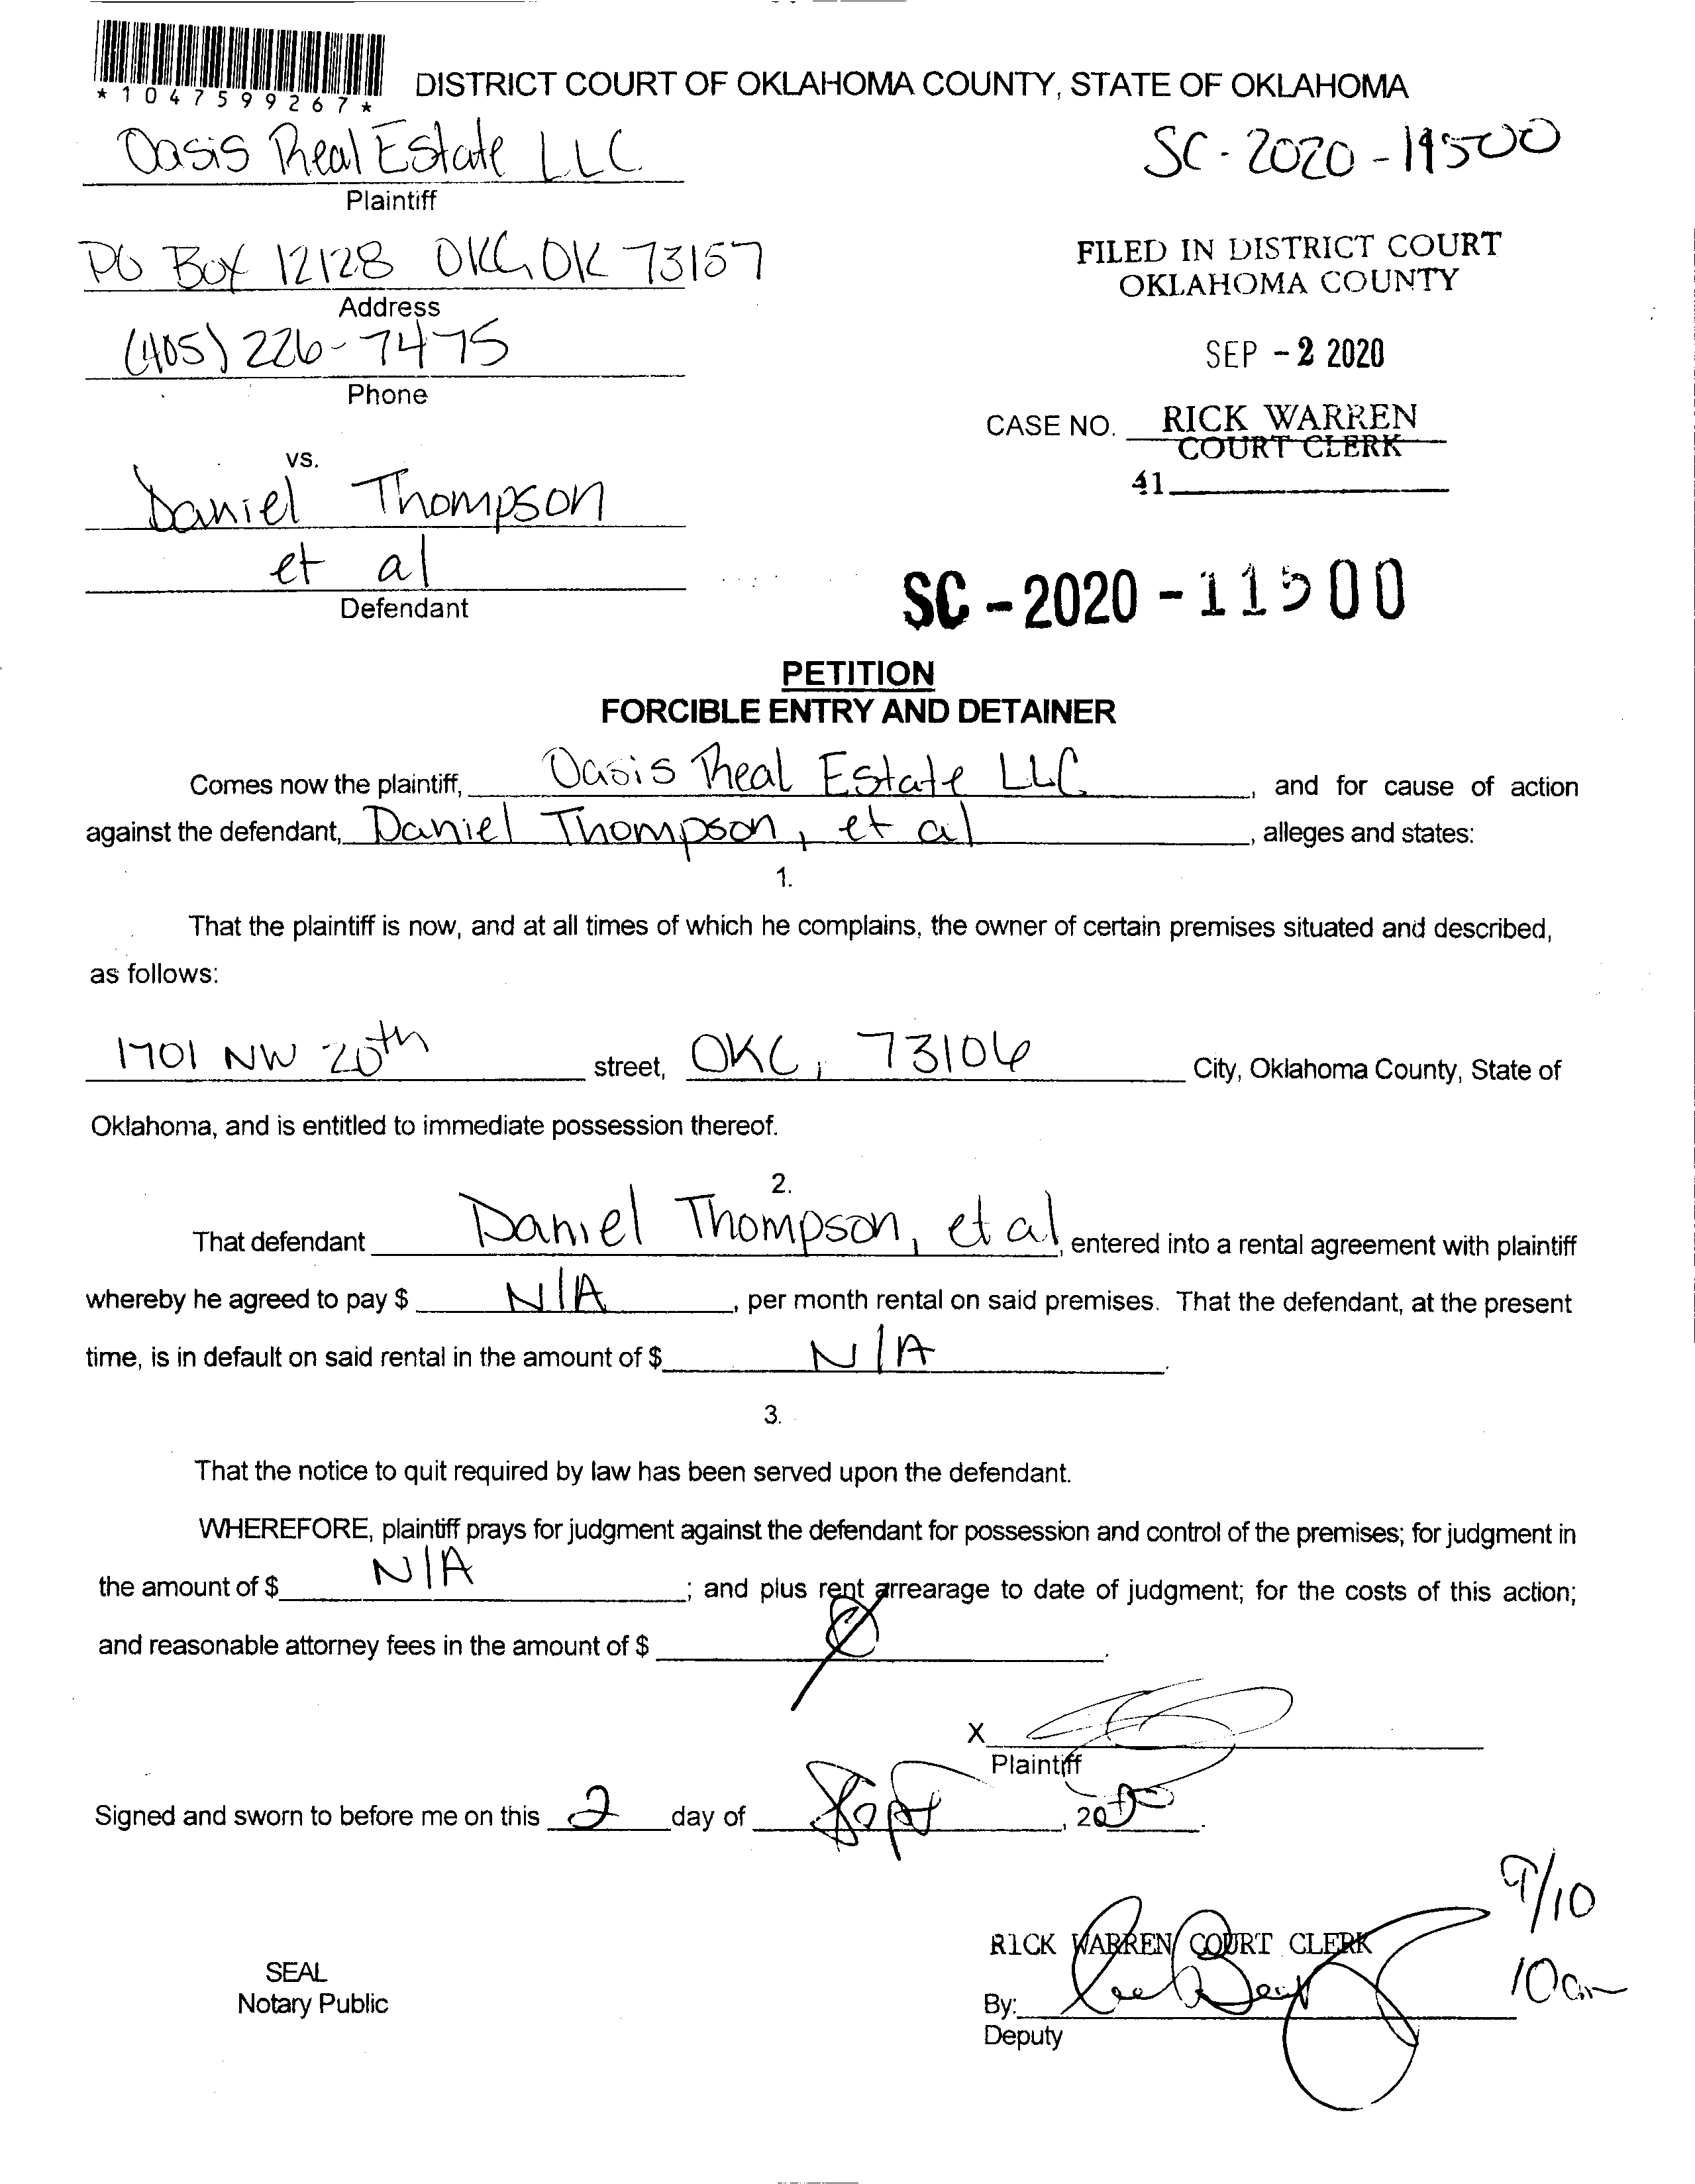 *1047599267*
DISTRICT COURT OF OKLAHOMA COUNTY, STATE OF OKLAHOMA
Oasis Real Estate LLC
Plaintiff
SC-2020-11500
PO BOX 12128 OKC, OK 73157
Address
FILED IN DISTRICT COURT
OKLAHOMA COUNTY
(405) 226-7475
Phone
SEP -2 2020
CASE NO. RICK WARREN
COURT CLERK
41
vs.
Daniel Thompson
et al
Defendant
SC-2020-11500
PETITION
FORCIBLE ENTRY AND DETAINER
Comes now the plaintiff, Oasis Real Estate LLC, and for cause of action
against the defendant, Daniel Thompson, et al, alleges and states:
1.
That the plaintiff is now, and at all times of which he complains, the owner of certain premises situated and described,
as follows:
1701 NW 20th street, OKC, 73106 City, Oklahoma County, State of
Oklahoma, and is entitled to immediate possession thereof.
2.
That defendant Daniel Thompson, et al, entered into a rental agreement with plaintiff
whereby he agreed to pay $ N/A, per month rental on said premises. That the defendant, at the present
time, is in default on said rental in the amount of $ N/A.
3.
That the notice to quit required by law has been served upon the defendant.
WHEREFORE, plaintiff prays for judgment against the defendant for possession and control of the premises; for judgment in
the amount of $ N/A; and plus rent arrearage to date of judgment; for the costs of this action;
and reasonable attorney fees in the amount of $ Ø.
X
Plaintiff
Signed and sworn to before me on this 2 day of Sept, 2020.
9/10
10am
RICK WARREN COURT CLERK
SEAL
Notary Public
By:
Deputy